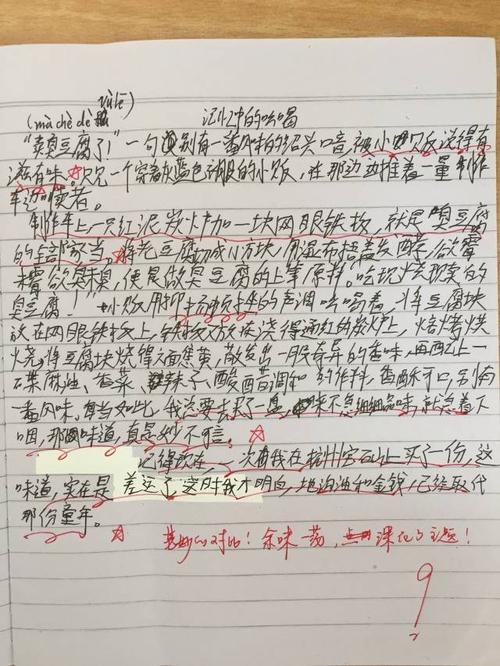 yú lē
(mà chè dè
记忆中的吆喝
“卖臭豆腐了!”一句别有一番风味的绍兴口音被小贩说得有
滋有味。只见一个穿着灰蓝色衣服的小贩,在那边推着一量制作
车边喊着。
制作车上一只红泥炭炉加一块网眼铁板,就是臭豆腐
的全部家当。将老豆腐切成小方块,用湿布捂着发酵,欲霉
未霉欲臭未臭,便是做臭豆腐的上等原料。“吃现烤现卖的
臭豆腐!”小贩用抑扬顿挫的音调吆喝着,将豆腐块
放在网眼铁板上,铁板又放在烧得通红的炭炉上,焙烤烘
烧,将豆腐块烧得双面焦黄,散发出一股奇异的香味,再配上一
碟麻油、香菜、辣子、酸醋调和的作料,香酥可口,别有
一番风味。每当如此,我总要去买一串,来不急细细品味,就急着下
咽,那味道,真是妙不可言。
记得现在,一次我在杭州宝石山上买了一份,这
味道,实在是差远了,这时我才明白,地沟油和金钱,已经取代
那份童年。
美妙的对比!余味一荡,深化了主题!